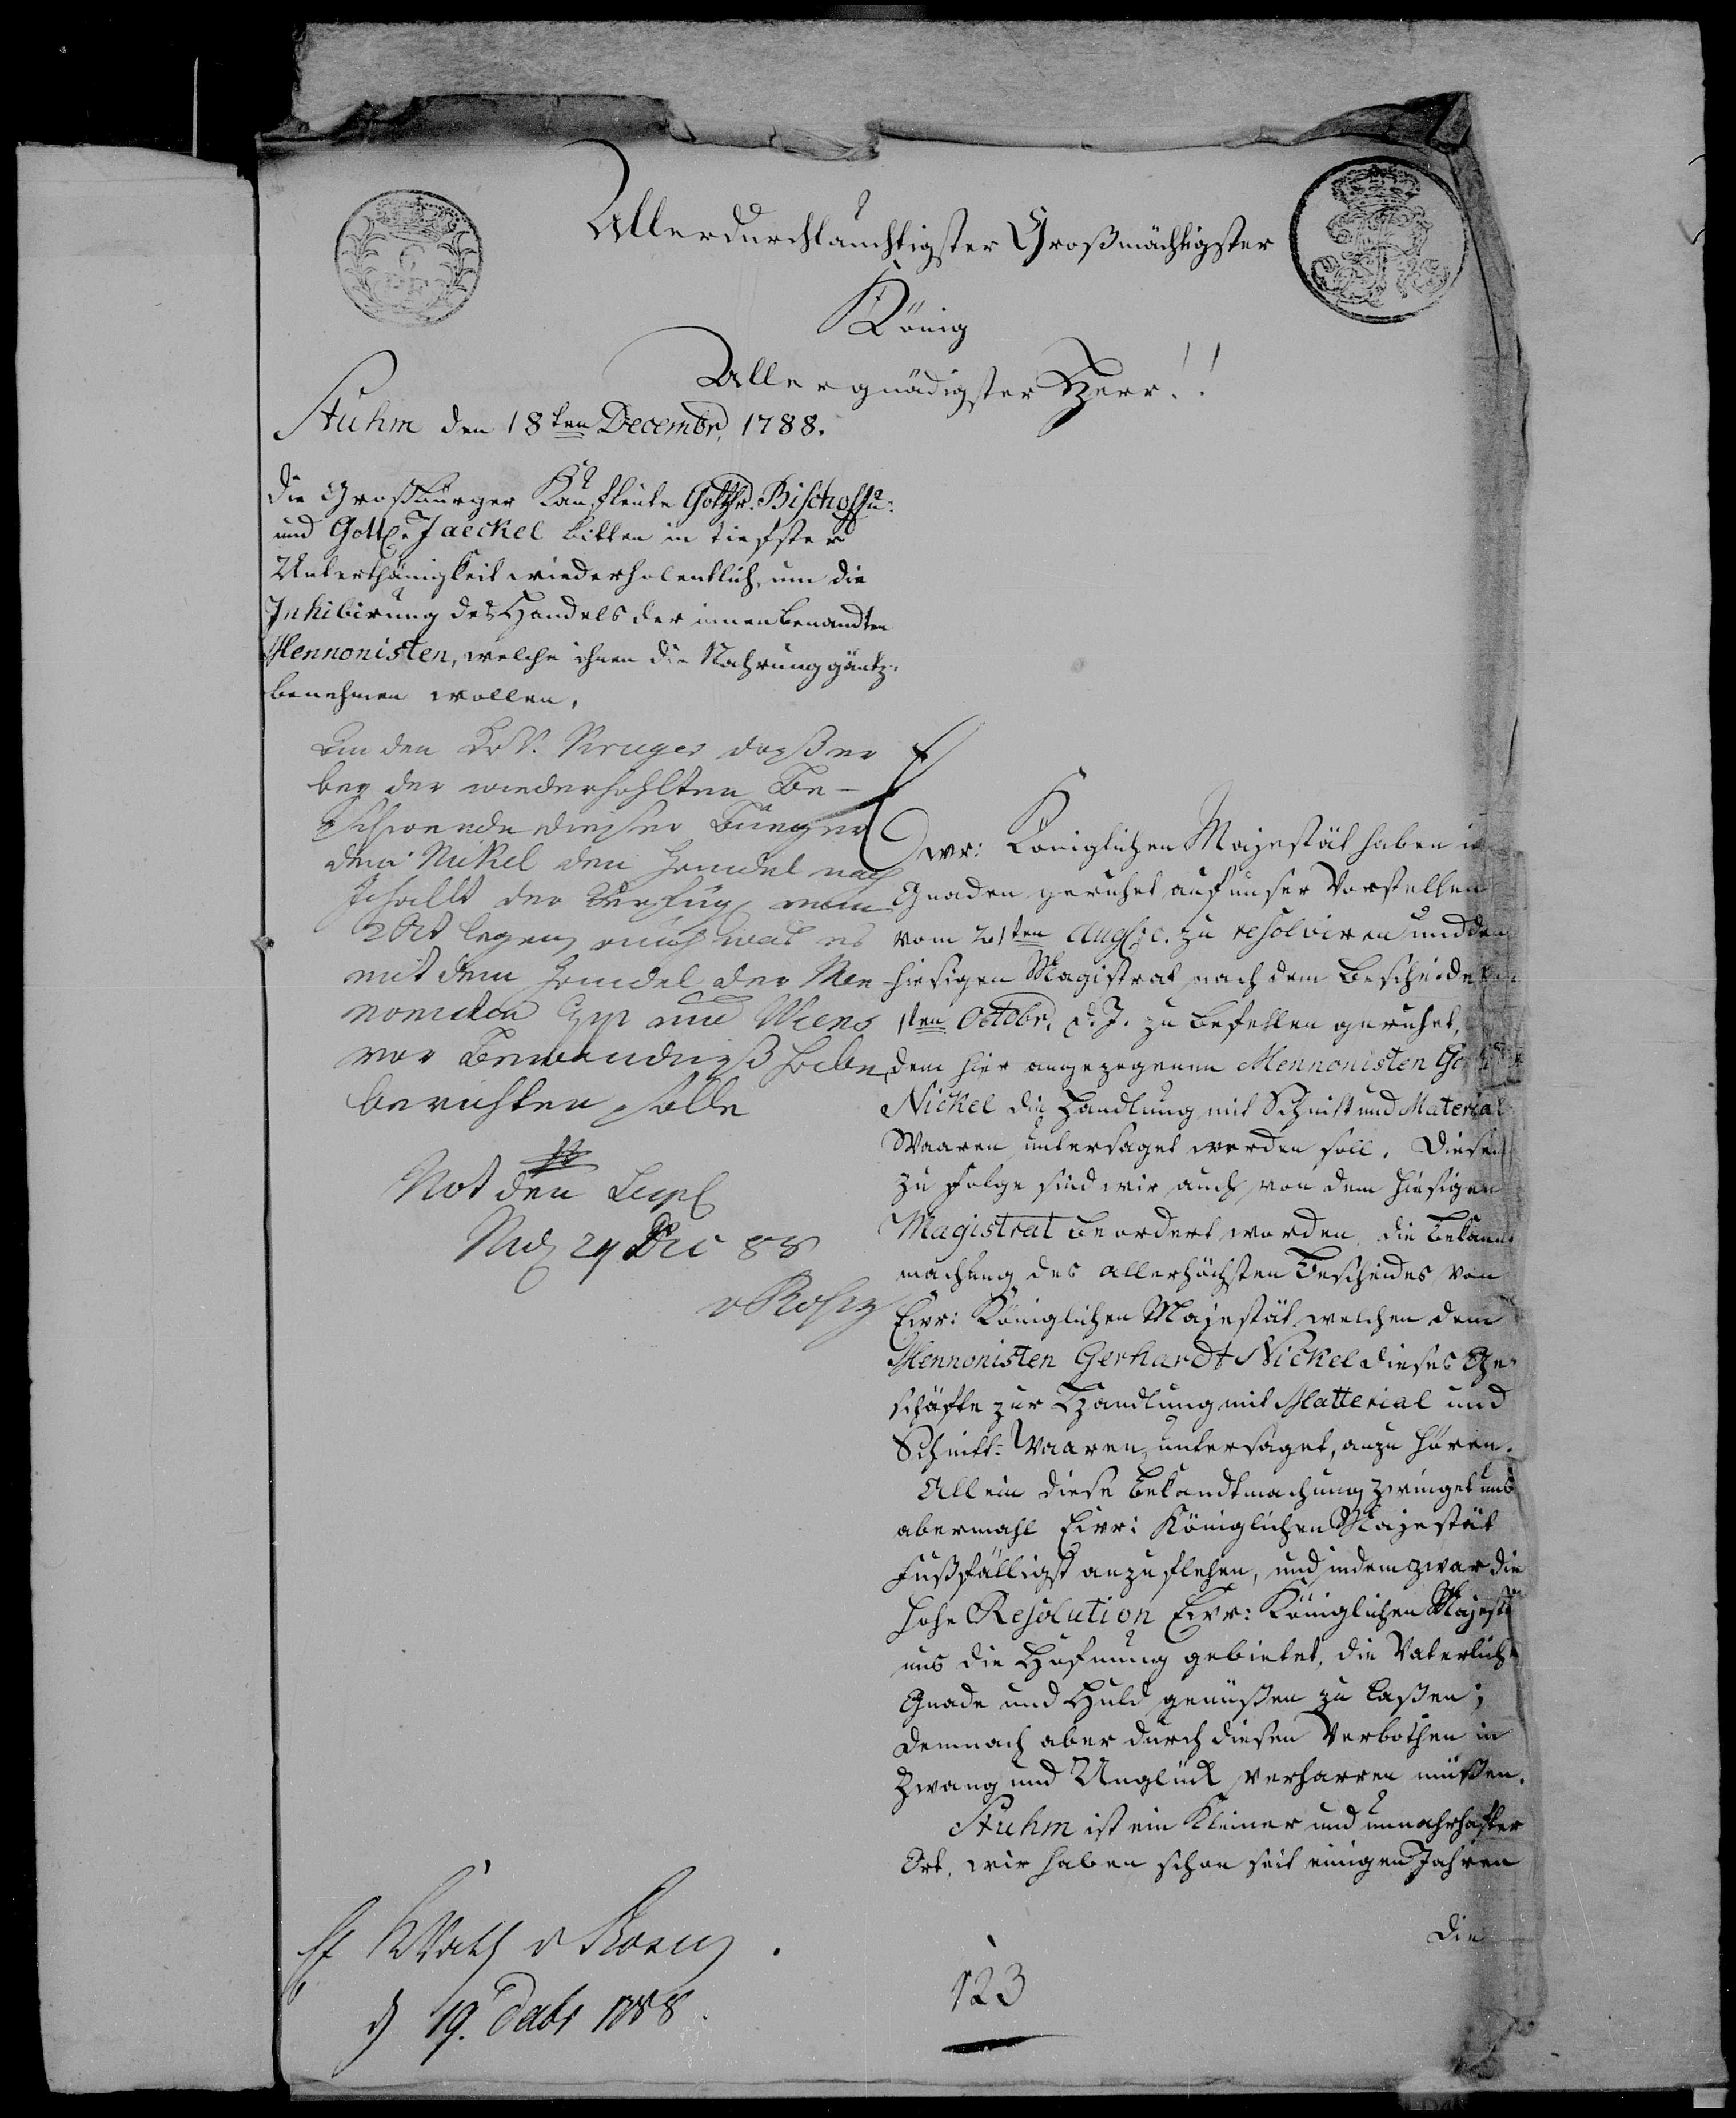 Allerdurchlauchtigster Großmächtigster
König
Allergnädigster Herr!!
Stuhm den 18ten Decembr. 1788.
Die Großbürger Kaufleute Gottfr. Bischoff
und Gottl. Jaeckel bitten in tiefster
Unterthänigkeit wiederholentlich, um die
Inhibirung des Handels der innenbenandten
Mennonisten, welche ihnen die Nahrung gäntz.
benehmen wollen.
An den Kruger daß er
bey der wiederhohlten Be-
schwerde dieser Bürger
dem Nickel den Handel nach
Inhallt der Verfüg vom
2 Oct legen auch was es
mit dem Handel der Men
nonisten und Wiens
vor Bewandniß habe
berichten solle
Not den
24 Dec 88
v Rosey
Ewr: Königlichen Majestät haben in
Gnaden geruhet auf unser Vorstellen
vom 21ten Aug: c. zu resolviren und dem
hiesigen Magistrat nach dem Bescheide
1ten Octobr. d. J. zu befehlen geruhet,
dem hier angezogenen Mennonisten
Nickel die Handlung mit Schnitt und Material
Waaren untersaget werden soll. Diesem
zu folge sind wir auch von dem hiesigen
Magistrat beordert worden, die bekannt
machung des allerhöchsten Bescheides von
Ewr: Königlichen Majestät welchen dem
Mennonisten Gerhardt Nickel dieses Ge-
schäfte zur Handlung mit Matterial und
Schnitt-Waaren untersaget, anzu hören.
Allein diese bekandtmachung zwinget uns
abermahl Ewr: Königlichen Majestät
Fußfälligst anzuflehen, und indem zwar die
hohe Resolution Ewr: Königlichen Majest
uns die Hofnung gebietet, die Vaterlich
Gnade und Huld genüßen zu laßen;
demnach aber durch diesen Verbothen in
Zwang und Unglück verharren müßen.
Stuhm ist ein kleiner und unnahrhafter
Ort, wir haben schon seit einigen Jahren
die
v Rosey.
d 19. Debr 1788.
123